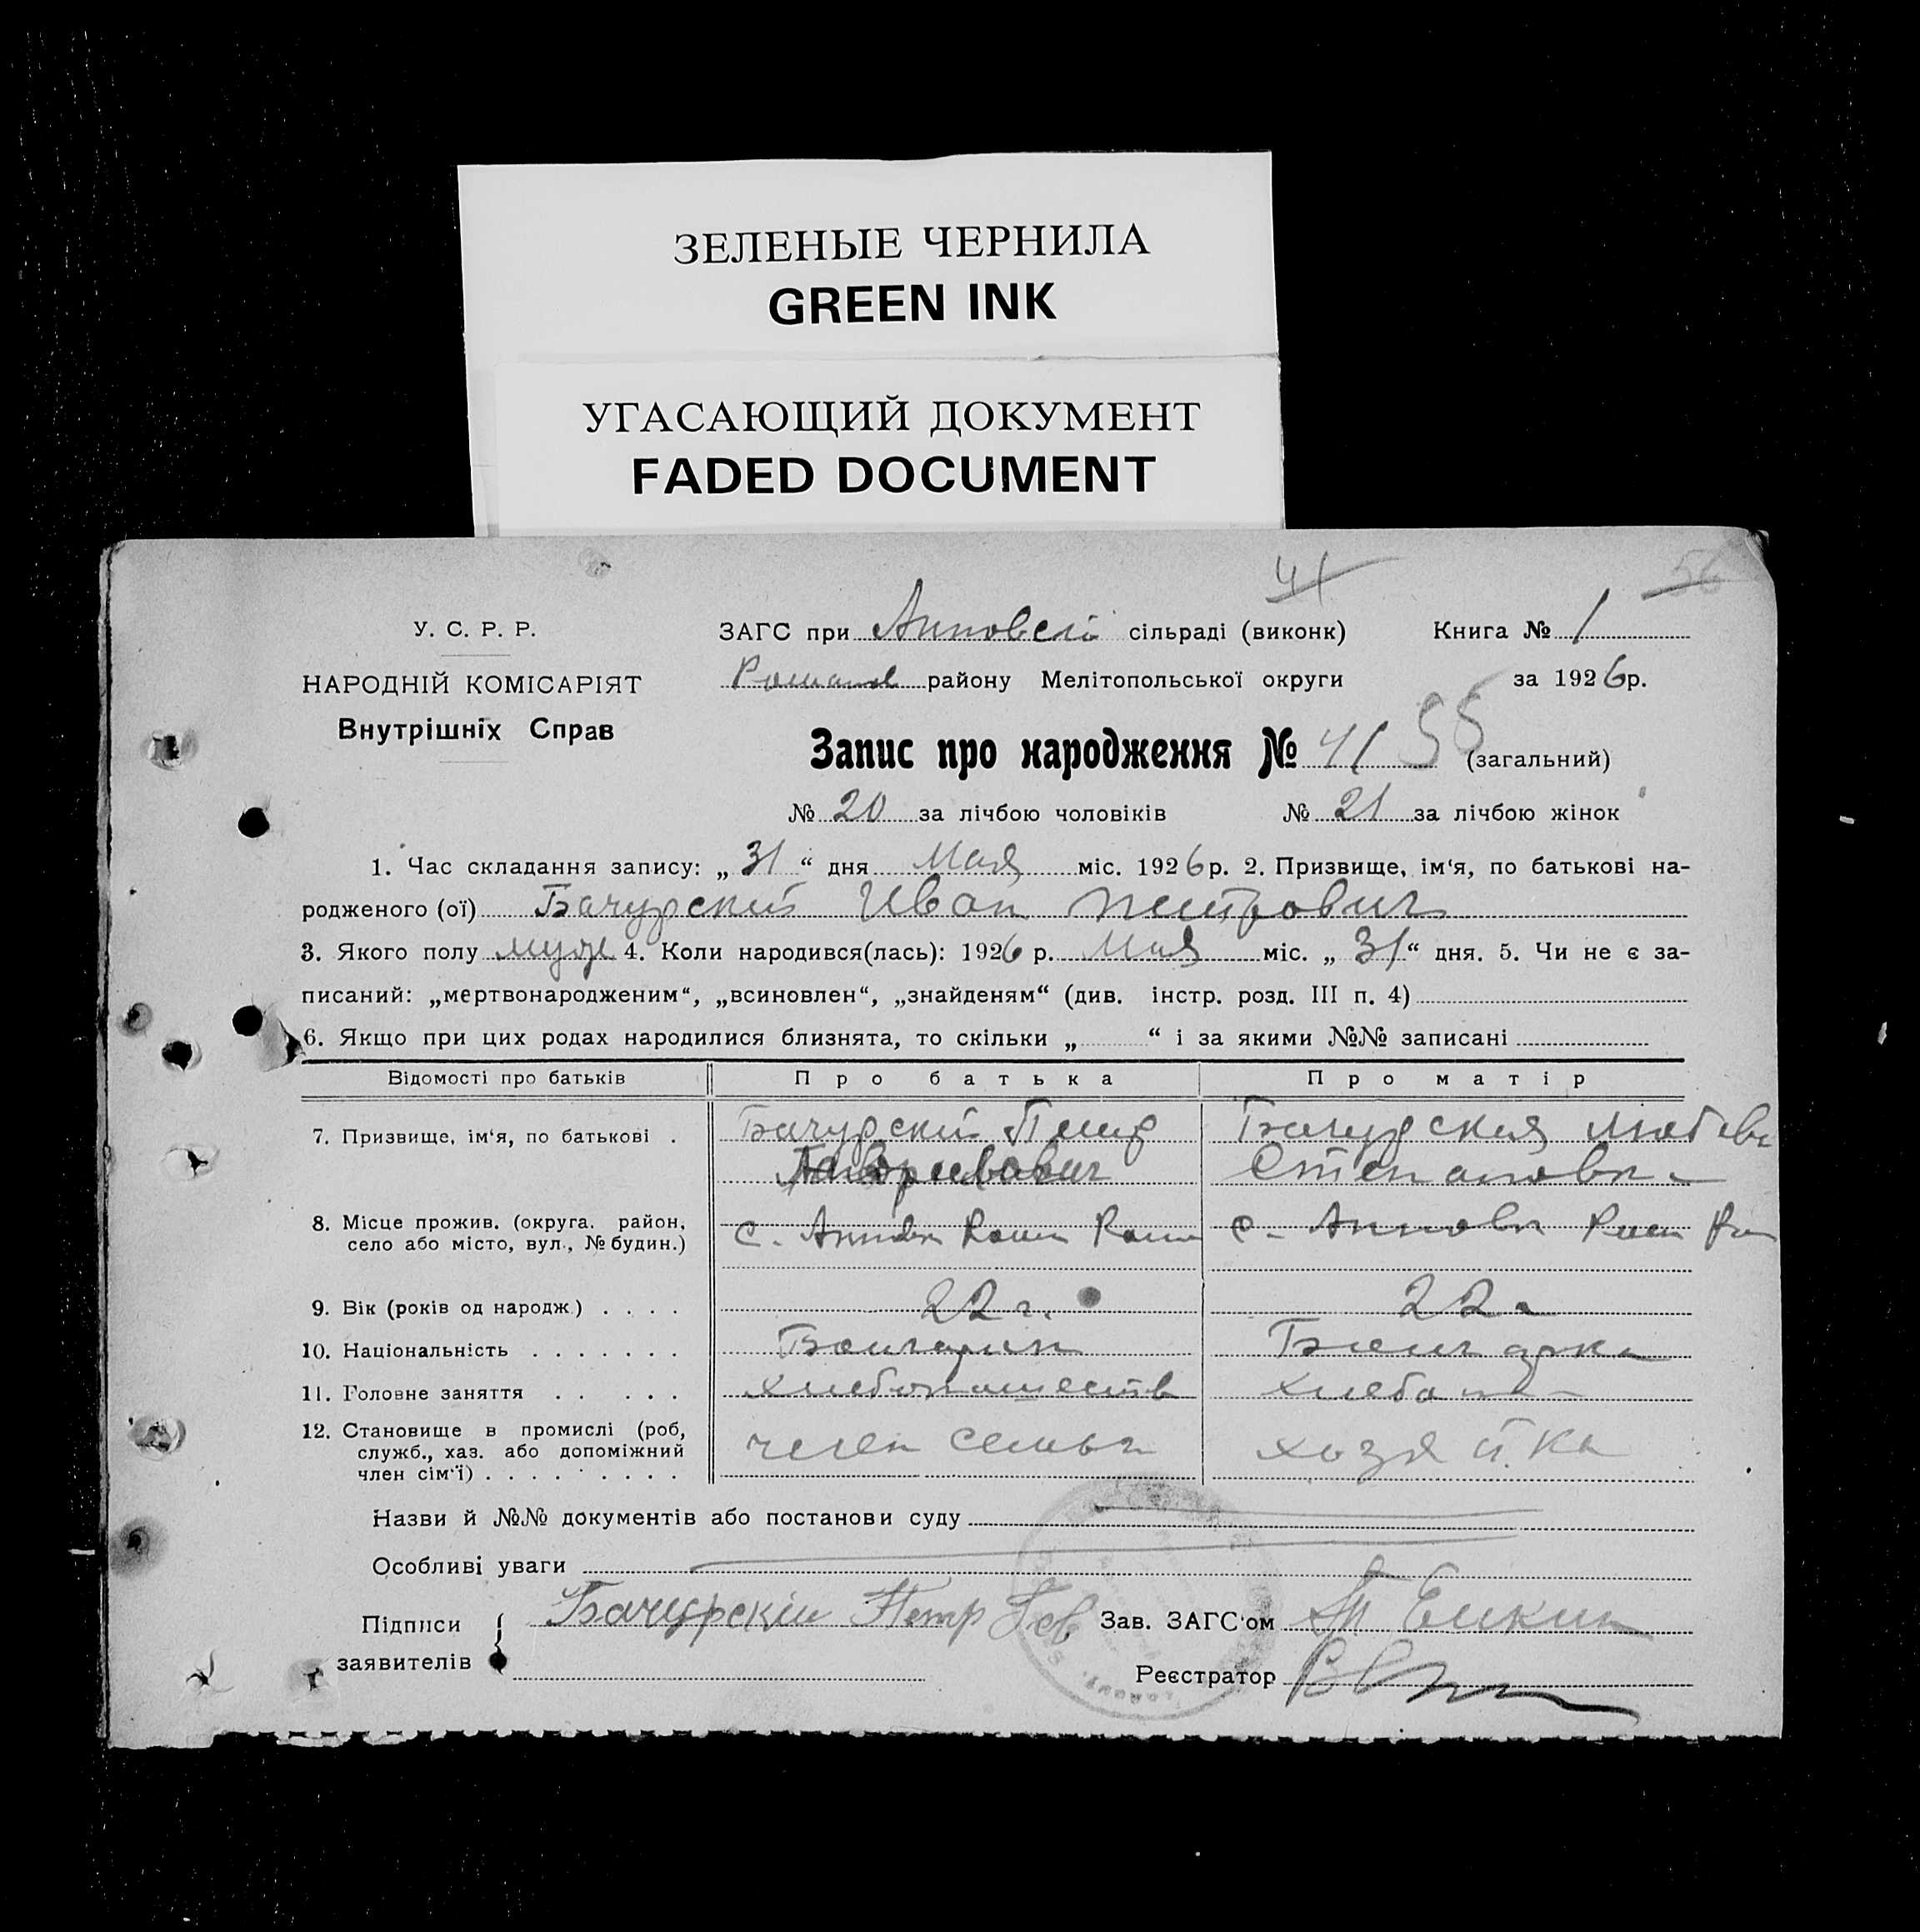 ЗЕЛЕНЫЕ ЧЕРНИЛА
GREEN INK
УГАСАЮЩИЙ ДОКУМЕНТ
FADED DOCUMENT
41 56
У. С. Р. Р.
НАРОДНІЙ КОМІСАРІЯТ
Внутрішніх Справ
ЗАГС при сільраді (виконк) Книга № 1
Роман району Мелітопольської округи за 1926р.
Запис про народження № 41 (загальний)
№ 20 за лічбою чоловіків № 21 за лічбою жінок
1. Час складання запису: „ 31 “ дня Мая міс. 1926р. 2. Призвище, ім'я, по батькові на-
родженого (ої) Бачурский Иван Петрович
3. Якого полу муж 4. Коли народився(лась): 1926 р. Мая міс. „ 31 “ дня. 5. Чи не є за-
писаний: „мертвонародженим“, „всиновлен“, „знайденям“ (див. інстр. розд. III п. 4)
6. Якщо при цих родах народилися близнята, то скільки „ “ і за якими №№ записані
Відомості про батьків Про батька Про матір
7. Призвище, ім'я, по батькові . Бачурский Петр Бачурская Любовь
Степановна
8. Місце прожив. (округа. район, село або місто, вул., № будин.) с. Анновка Ром с. Анновка Ром
9. Вік (років од народж.) . . . . 22 г. 22 г
10. Національність . . . . . . . Болгарин Болгарка
11. Головне заняття . . . . . хлебопашеств хлебопа
12. Становище в промислі (роб, служб., хаз. або допоміжний член сім'ї) . . . . . . . . . член семьи хозяйка
Назви й №№ документів або постанови суду
Особливі уваги
Підписи заявителів Бачурскій Петр Зав. ЗАГС'ом
Реєстратор